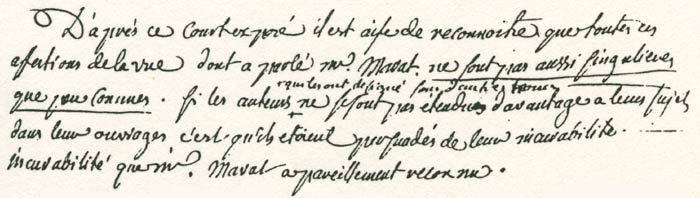 D'après ce Court exposé il est aisé de reconnoitre que toutes ces
afections de la vue dont a parlé mr. Marat. ne sont pas aussi singulieres
que peu Connues. Si les auteurs ne se sont pas etendus d'avantage a leur sujet
qui les ont designé sous d'autres noms
dans leur ouvrages c'est qu'ils etoient persuadés de leur incurabilité.
incurabilité que mr. Marat a pareillement reconnu.